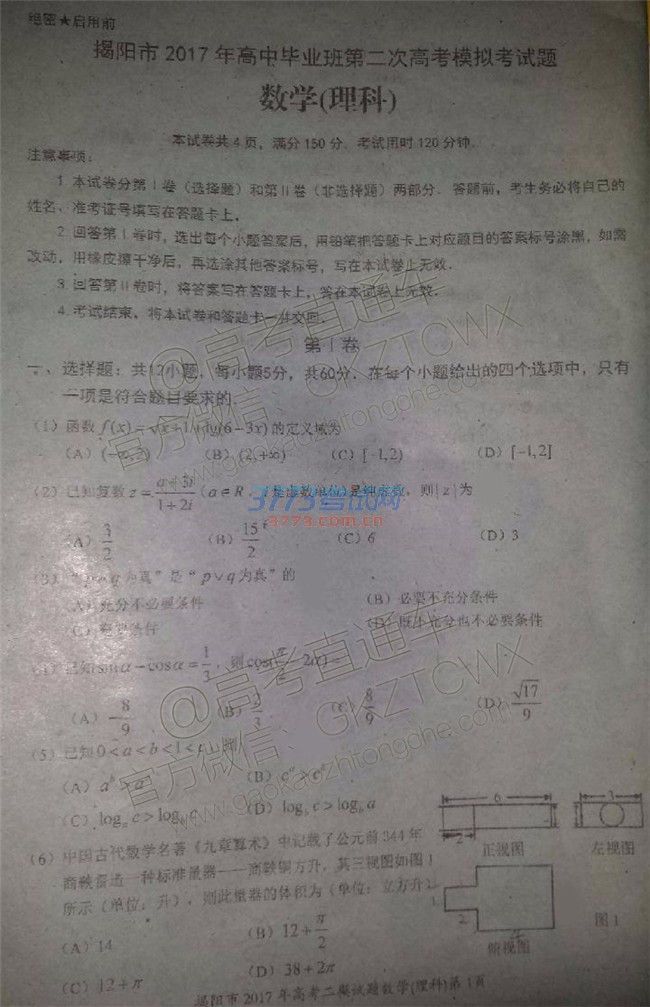 绝密★启用前
揭阳市 2017 年高中毕业班第二次高考模拟考试题
数学(理科)
本试卷共 4 页，满分 150 分．考试用时 120 分钟．
注意事项：
1 本试卷分第 I 卷（选择题）和第 II 卷（非选择题）两部分．答题前，考生务必将自己的
姓名、准考证号填写在答题卡上．
2 回答第 I 卷时，选出每个小题答案后，用铅笔把答题卡上对应题目的答案标号涂黑，如需
改动，用橡皮擦干净后，再选涂其他答案标号，写在本试卷上无效．
3 回答第 II 卷时，将答案写在答题卡上，答在本试卷上无效．
4 考试结束，将本试卷和答题卡一并交回．
第 I 卷
一、选择题：共12小题，每小题5分，共60分．在每个小题给出的四个选项中，只有
一项是符合题目要求的．
（1）函数 f(x)=√x+1+lg(6−3x) 的定义域为
(A) (−∞,2) (B) (2,+∞) (C) [−1,2) (D) [−1,2]
（2）已知复数 z = (a+3i)/(1+2i) (a∈R，i 是虚数单位) 是纯虚数，则 |z| 为
(A) 3/2 (B) 15/2 (C) 6 (D) 3
（3）“p∧q 为真”是“p∨q 为真”的
(A) 充分不必要条件 (B) 必要不充分条件
(C) 充要条件 (D) 既不充分也不必要条件
（4）已知 sinα−cosα = 1/3，则 cos(π/2 − 2α) =
(A) −8/9 (B) 2/3 (C) 8/9 (D) √17/9
（5）已知 0<a<b<1<c，则
(A) (B)
(C) (D) log_b c > log_b a
（6）中国古代数学名著《九章算术》中记载了公元前 344 年
商鞅督造一种标准量器——商鞅铜方升，其三视图如图 1
所示（单位：升），则此量器的体积为（单位：立方升）
(A) 14 (B) 12+π/2
(C) 12+π (D) 38+2π
6 3
2
正视图 左视图
1
2
俯视图 图 1
揭阳市 2017 年高考二模试题数学(理科)第 1页
@高考直通车
官方微信：GKZTCWX
www.gaokaozhitongche.com
3773考试网
3773.com.cn
@高考直通车
官方微信：GKZTCWX
www.gaokaozhitongche.com